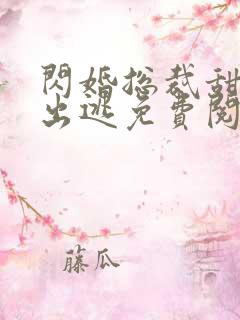 閃婚总裁甜
出逃免費閱
藤瓜